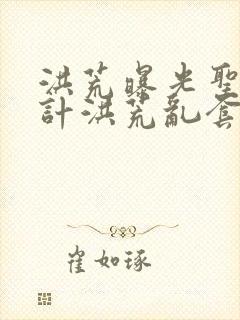 洪荒曝光聖
計洪荒亂套
崔如琢